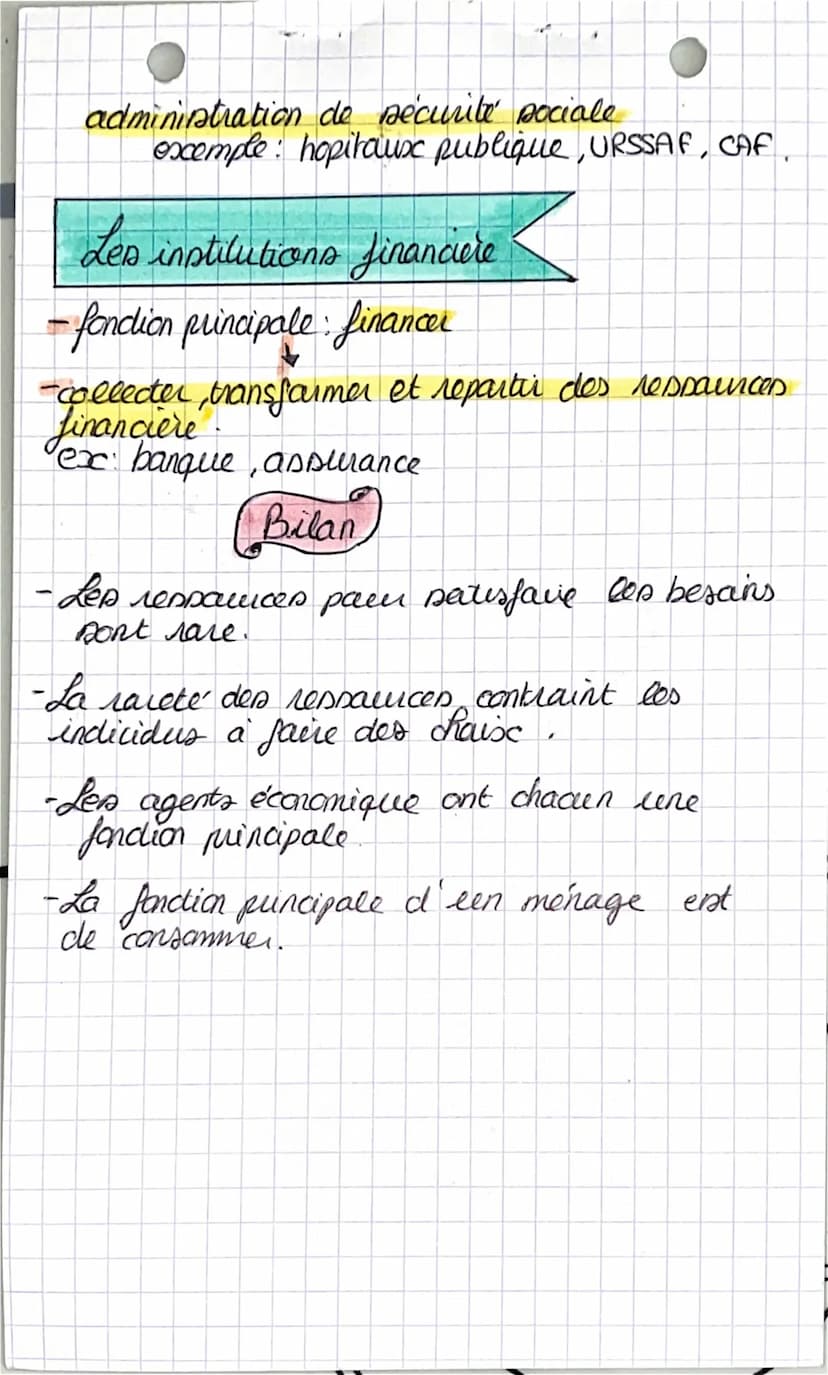 administration de sécurité sociale
exemple : hopitaux publique, URSSAF, CAF.
Les institutions financière
- fonction principale : financer
- collecter, transformer et repartir des ressources
financière.
ex : banque, assurance
Bilan
- Les ressources pour satisfaire les besoins
sont rare.
- La rareté des ressources contraint les
indicidus à faire des choix.
- Les agents économique ont chacun une
fonction principale
- La fonction principale d'un ménage est
de consommer.